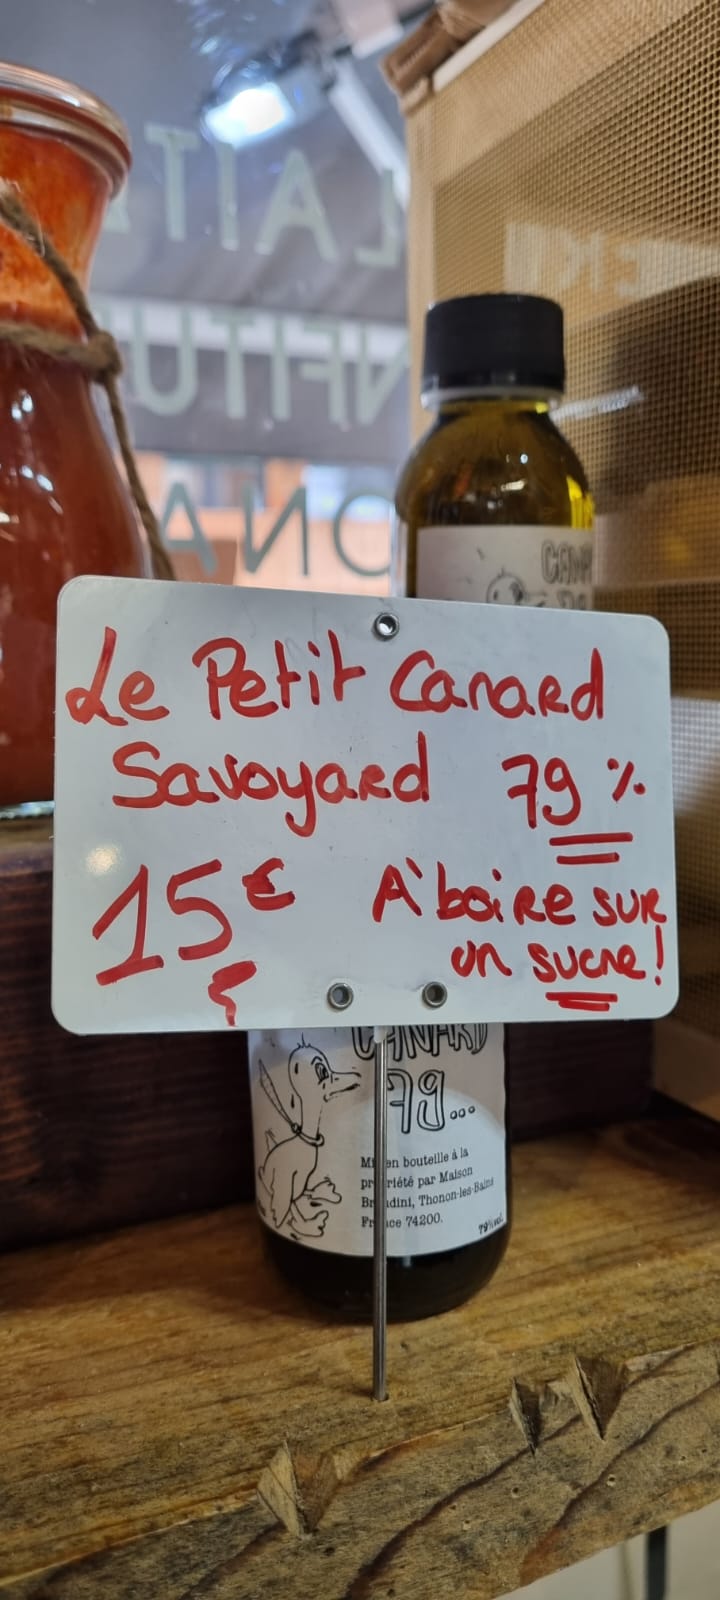 LAITE
NFITU
ONA
CANA
79
Le Petit Canard
Savoyard 79 %
15€
A boire sur
un sucre!
CANARD
79...
Mis en bouteille à la
propriété par Maison
Thonon-les-Bains
France 74200.
79%vol